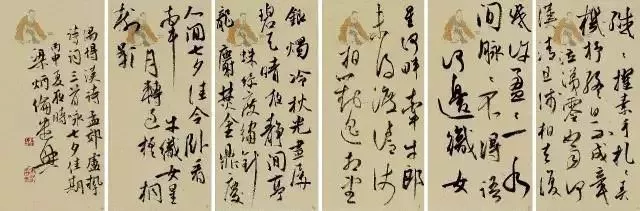 纖纖擢素手札札弄
機杼終日不成章
泣涕零如雨河
漢清且淺相去復
幾許盈盈一水
間脉脉不得語
河邊織女
星河畔牽牛郎
未得渡清淺
相對遥相望
銀燭冷秋光畫屏
碧天晴夜靜閒亭
蛛絲度繡針
龍麝焚金鼎慶
人間七夕佳令卧看
牽牛織女星
月轉過梧桐
樹影
漢詩孟郊盧摯
詩詞三首詠七夕佳期
丙申夏夜時
梁炳倫書